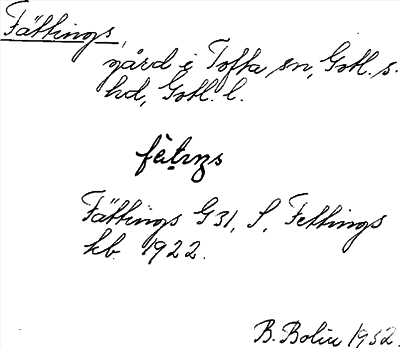 Fättings,
gård i Tofta sn, Gotl. s.
hd, Gotl. l.
fä̀tıŋs
Fättings G 31, S, Fettings
kb 1922.
B. Bolin 1932.